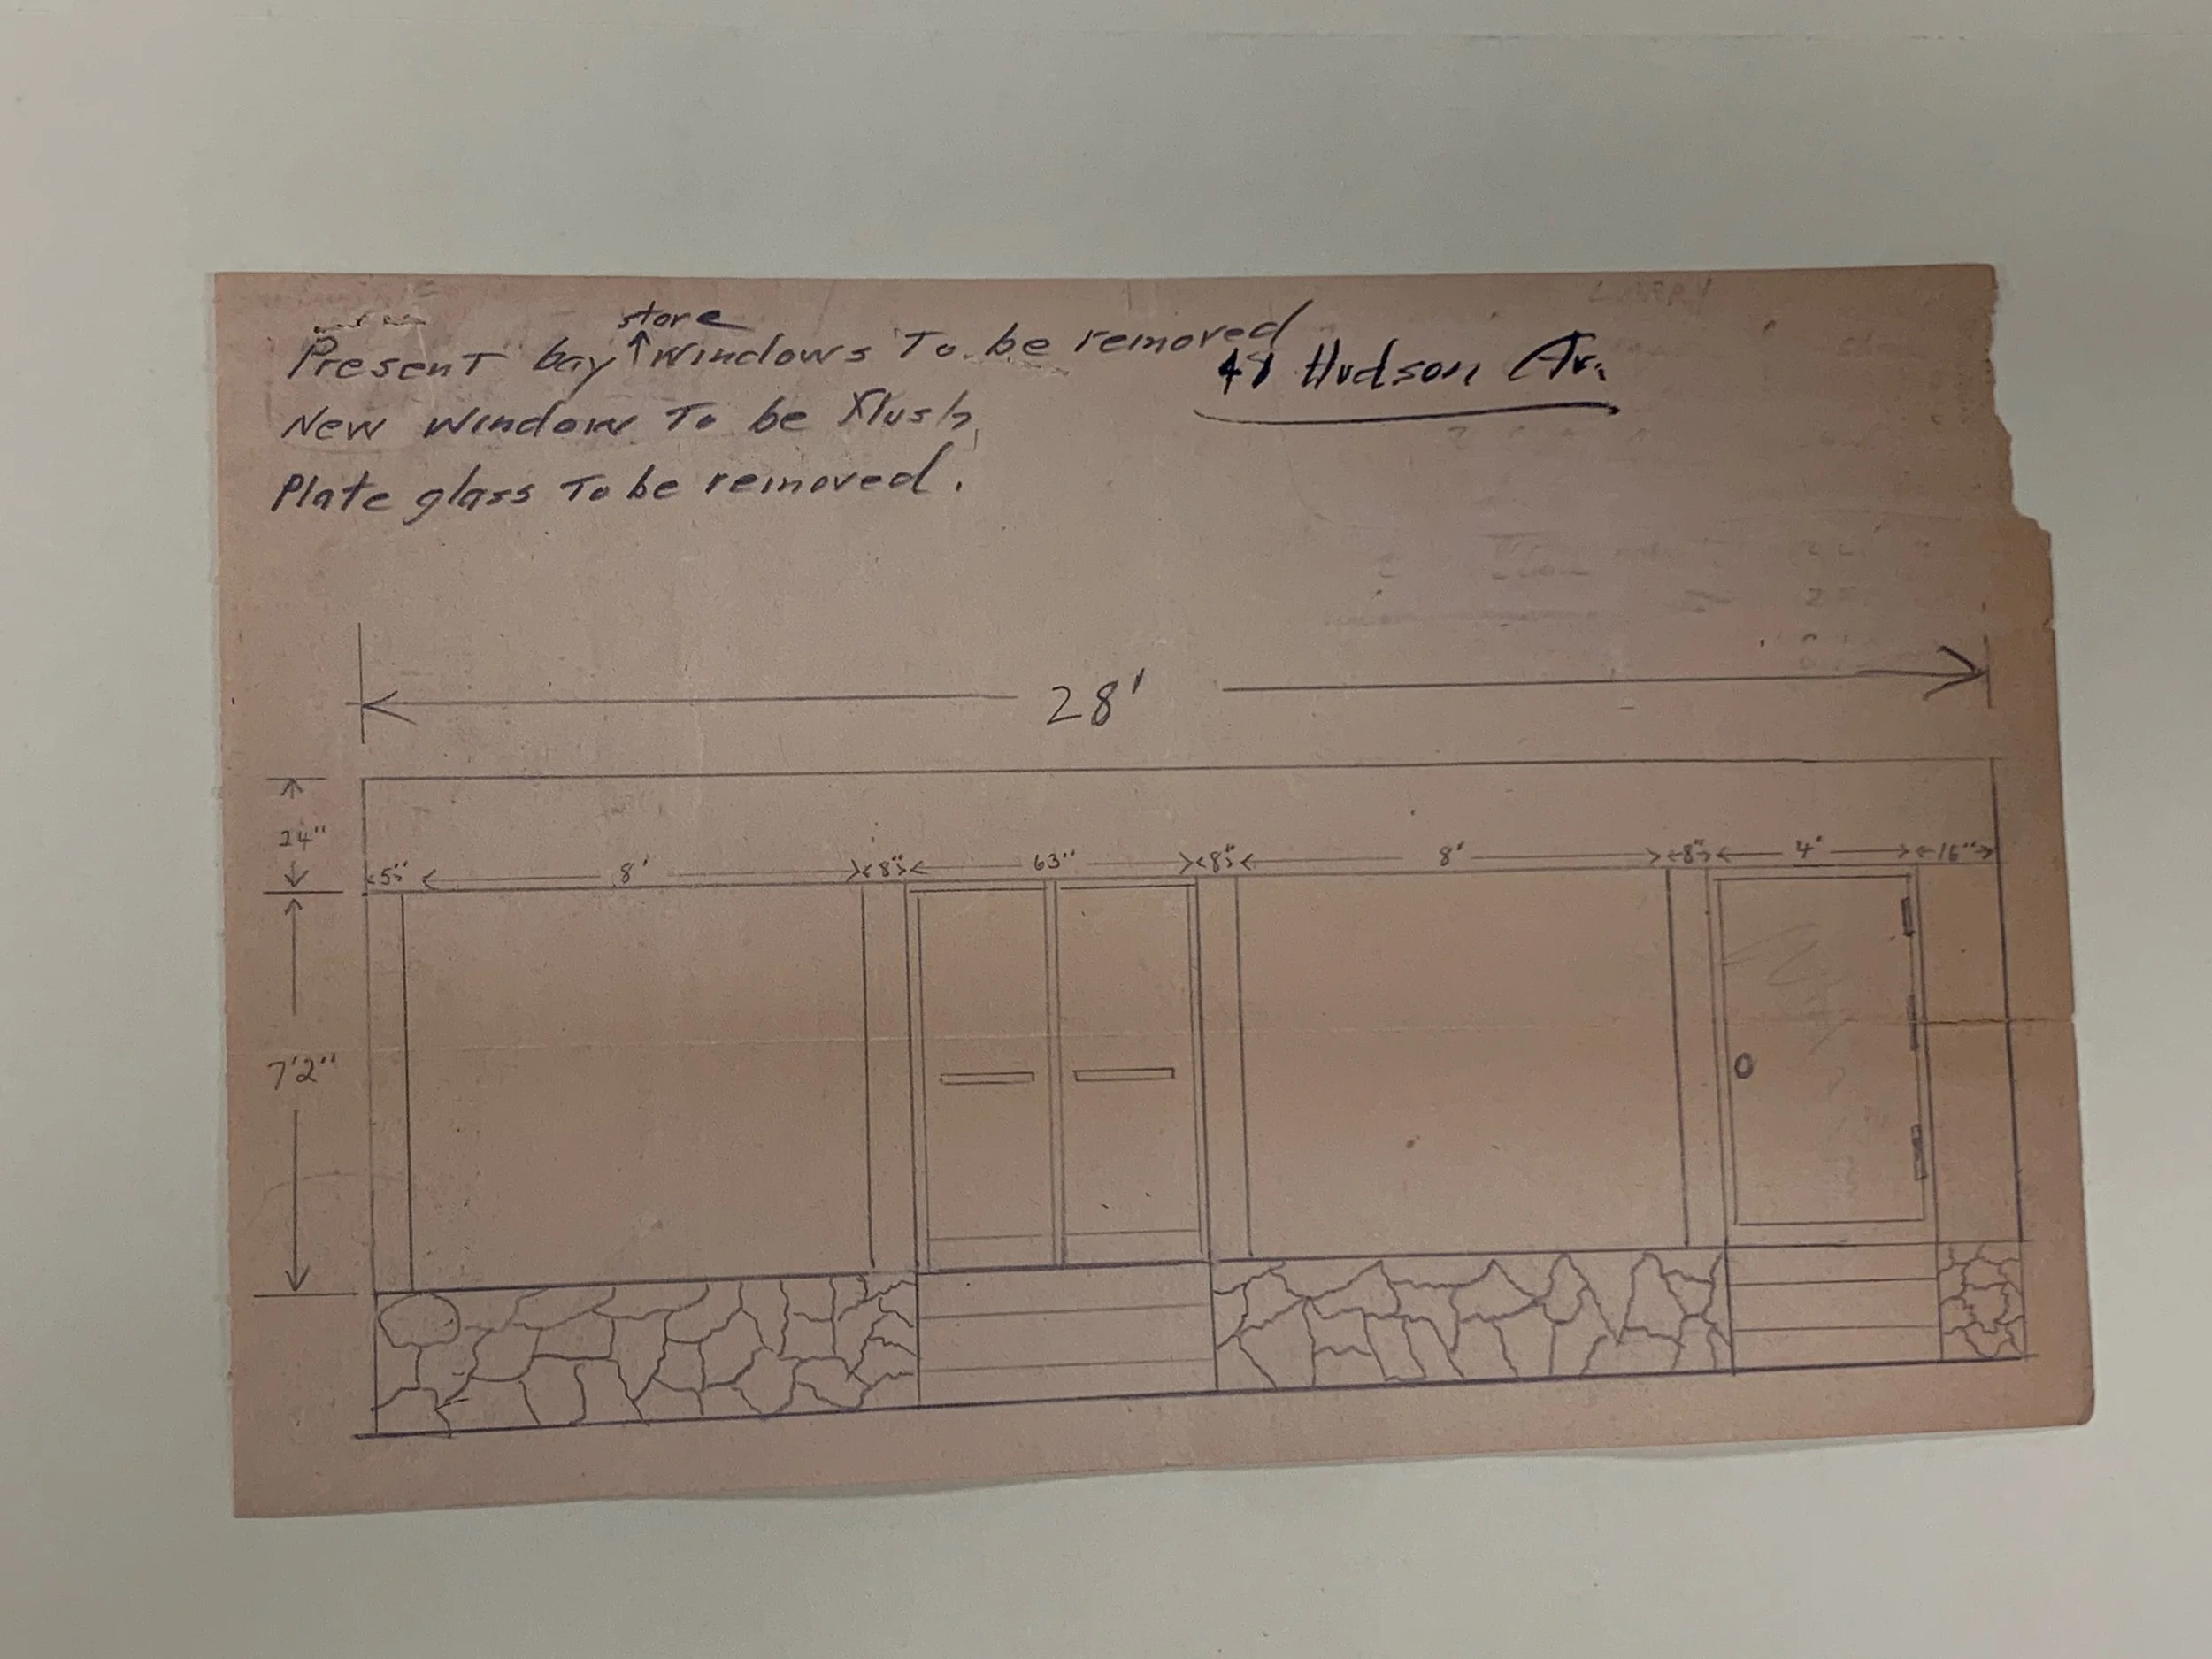 Present bay store windows To be removed
48 Hudson Av.
New window To be Flush
Plate glass To be removed.
28'
24"
5" 8' 8" 63" 8" 8' 8" 4' 16"
7'2"